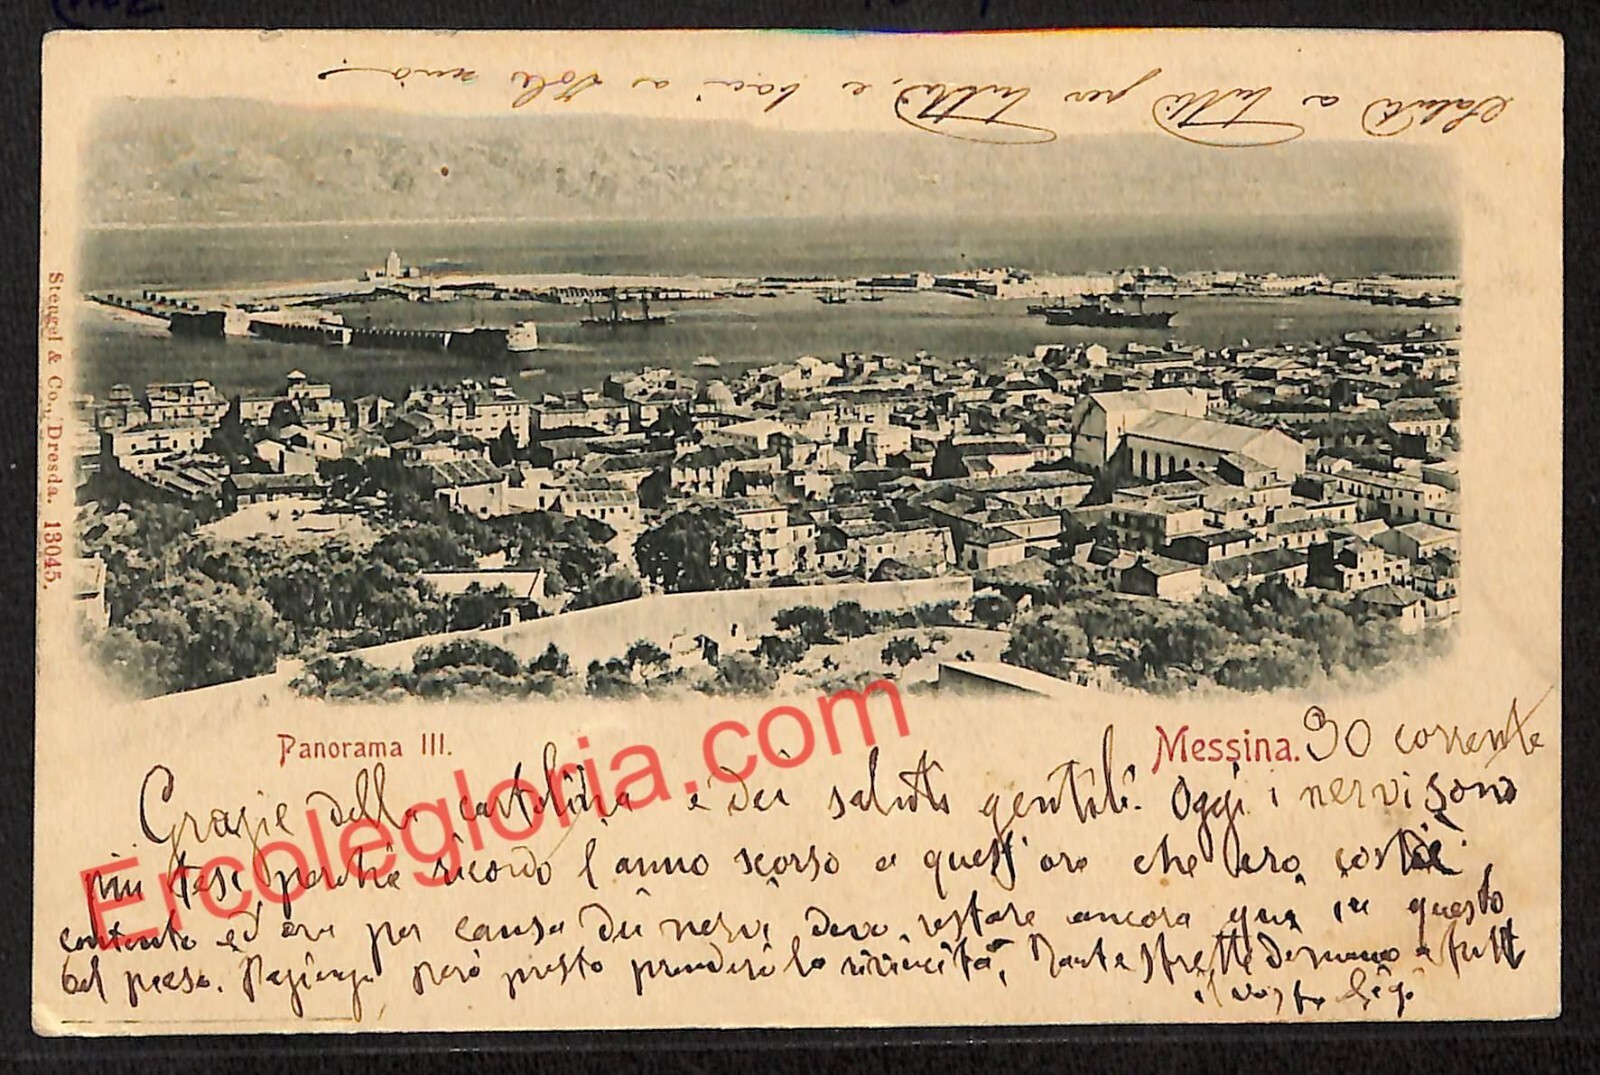 Saluti a tutti per tutti, e baci a Jole mia.
Stengel & Co., Dresda. 13045.
Panorama III.
Messina. 30 corrente
Grazie della cartolina e dei saluti gentili. Oggi i nervi sono
più tesi perchè ricordo l'anno scorso a quest'ora che ero costì
contento ed ora per causa dei nervi devo restare ancora qui in questo
bel paese. Pazienza però presto prenderò la rivincita. Tante strette di mano a tutti
il vostro Gigi
Ercolegloria.com